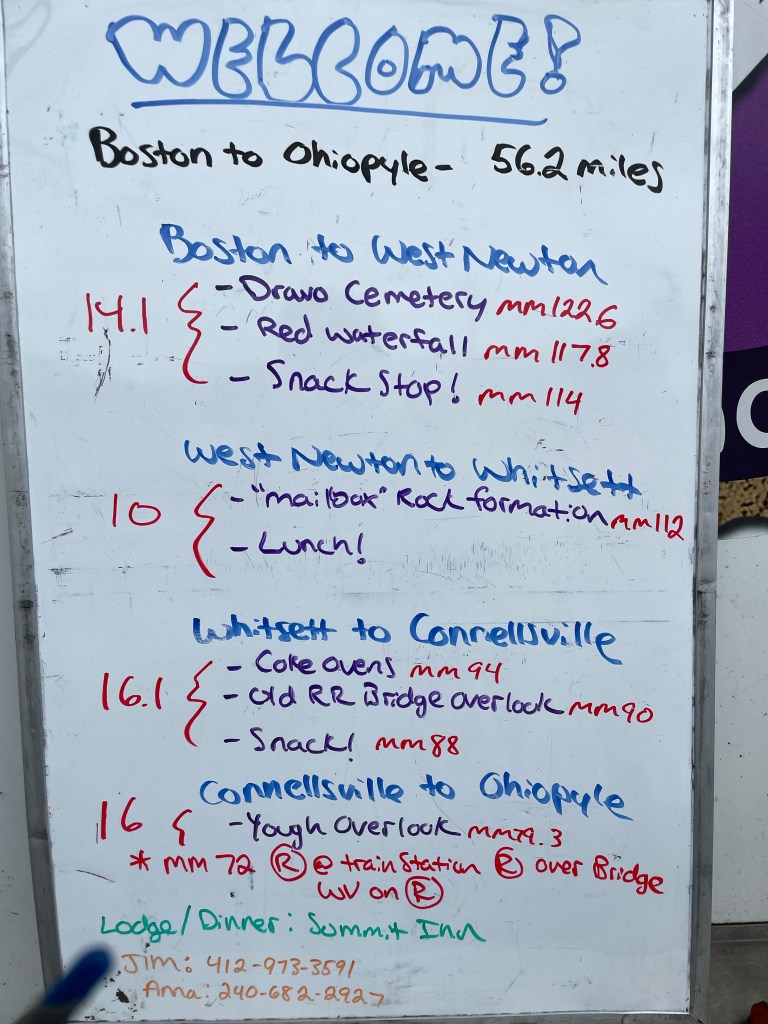 WELCOME!
Boston to Ohiopyle- 56.2 miles
Boston to West Newton
14.1 { - Dravo Cemetery mm122.6
- Red waterfall mm 117.8
- Snack Stop! mm 114
West Newton to Whitsett
10 { - "mailbox" Rock formation mm112
- Lunch!
Whitsett to Connellsville
16.1 { - Coke ovens mm 94
- Old RR Bridge overlook mm90
- Snack! mm 88
Connellsville to Ohiopyle
16 { - Yough Overlook mm79.3
* mm 72 Ⓡ @ train Station Ⓡ over Bridge
WV on Ⓡ
Lodge/Dinner: Summit Inn
Jim: 412-973-3591
Anna: 240-682-2927